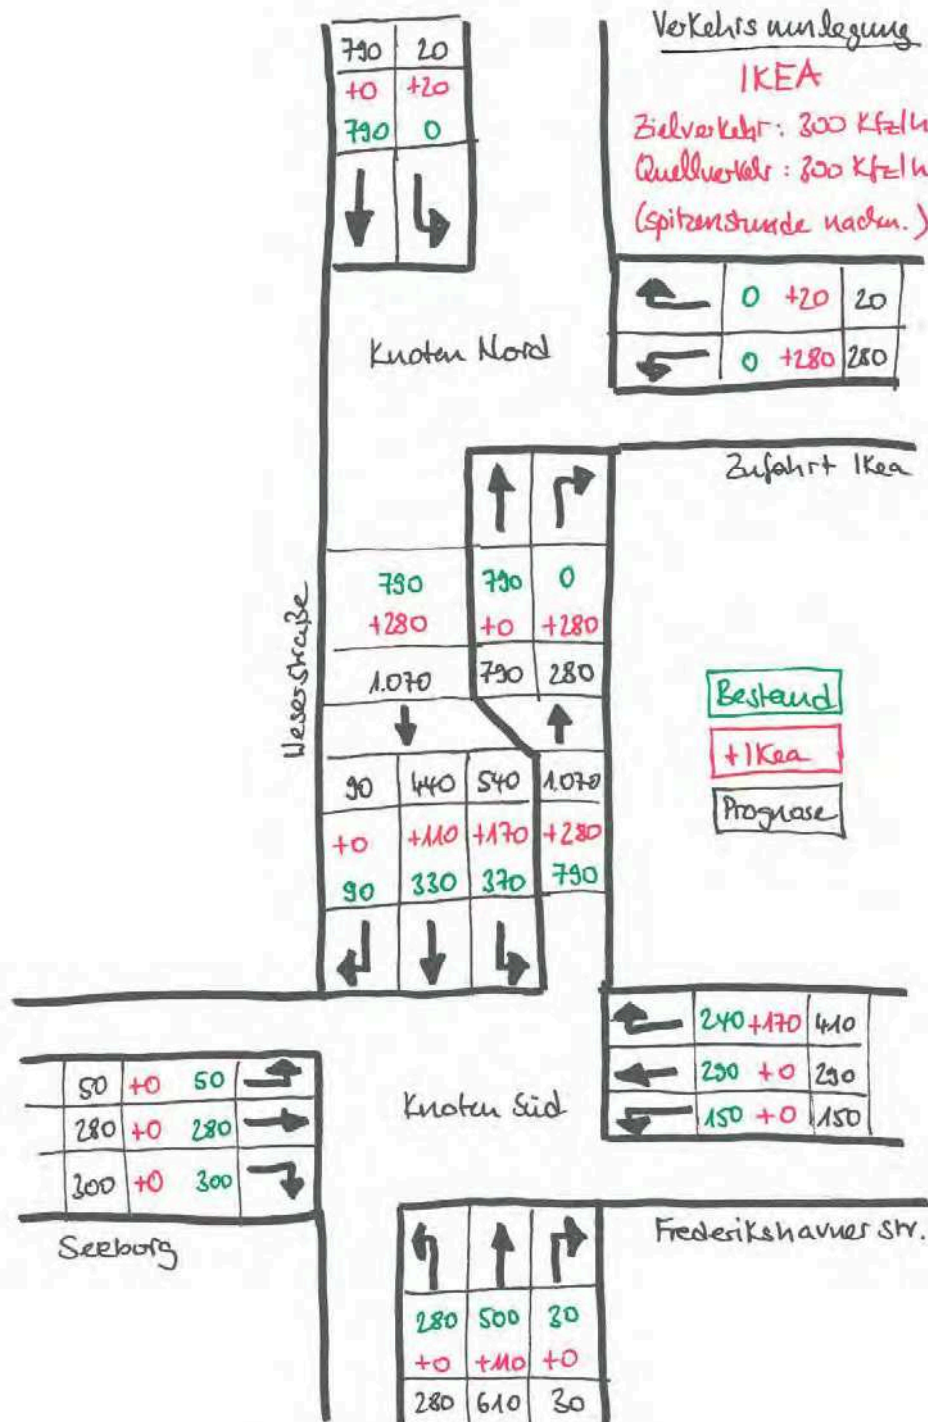 Verkehrsumlegung
IKEA
Zielverkehr: 300 Kfz/h
Quellverkehr: 300 Kfz/h
(spitzenstunde nachm.)
790 20
+0 +20
790 0
0 +20 20
0 +280 280
Knoten Nord
Zufahrt Ikea
790 790 0
+280 +0 +280
1.070 790 280
Weserstraße
Bestand
+Ikea
Prognose
90 440 540 1.070
+0 +110 +170 +280
90 330 370 790
240 +170 410
290 +0 290
150 +0 150
50 +0 50
280 +0 280
300 +0 300
Knoten Süd
Seeborg
Frederikshavner Str.
280 500 30
+0 +110 +0
280 610 30